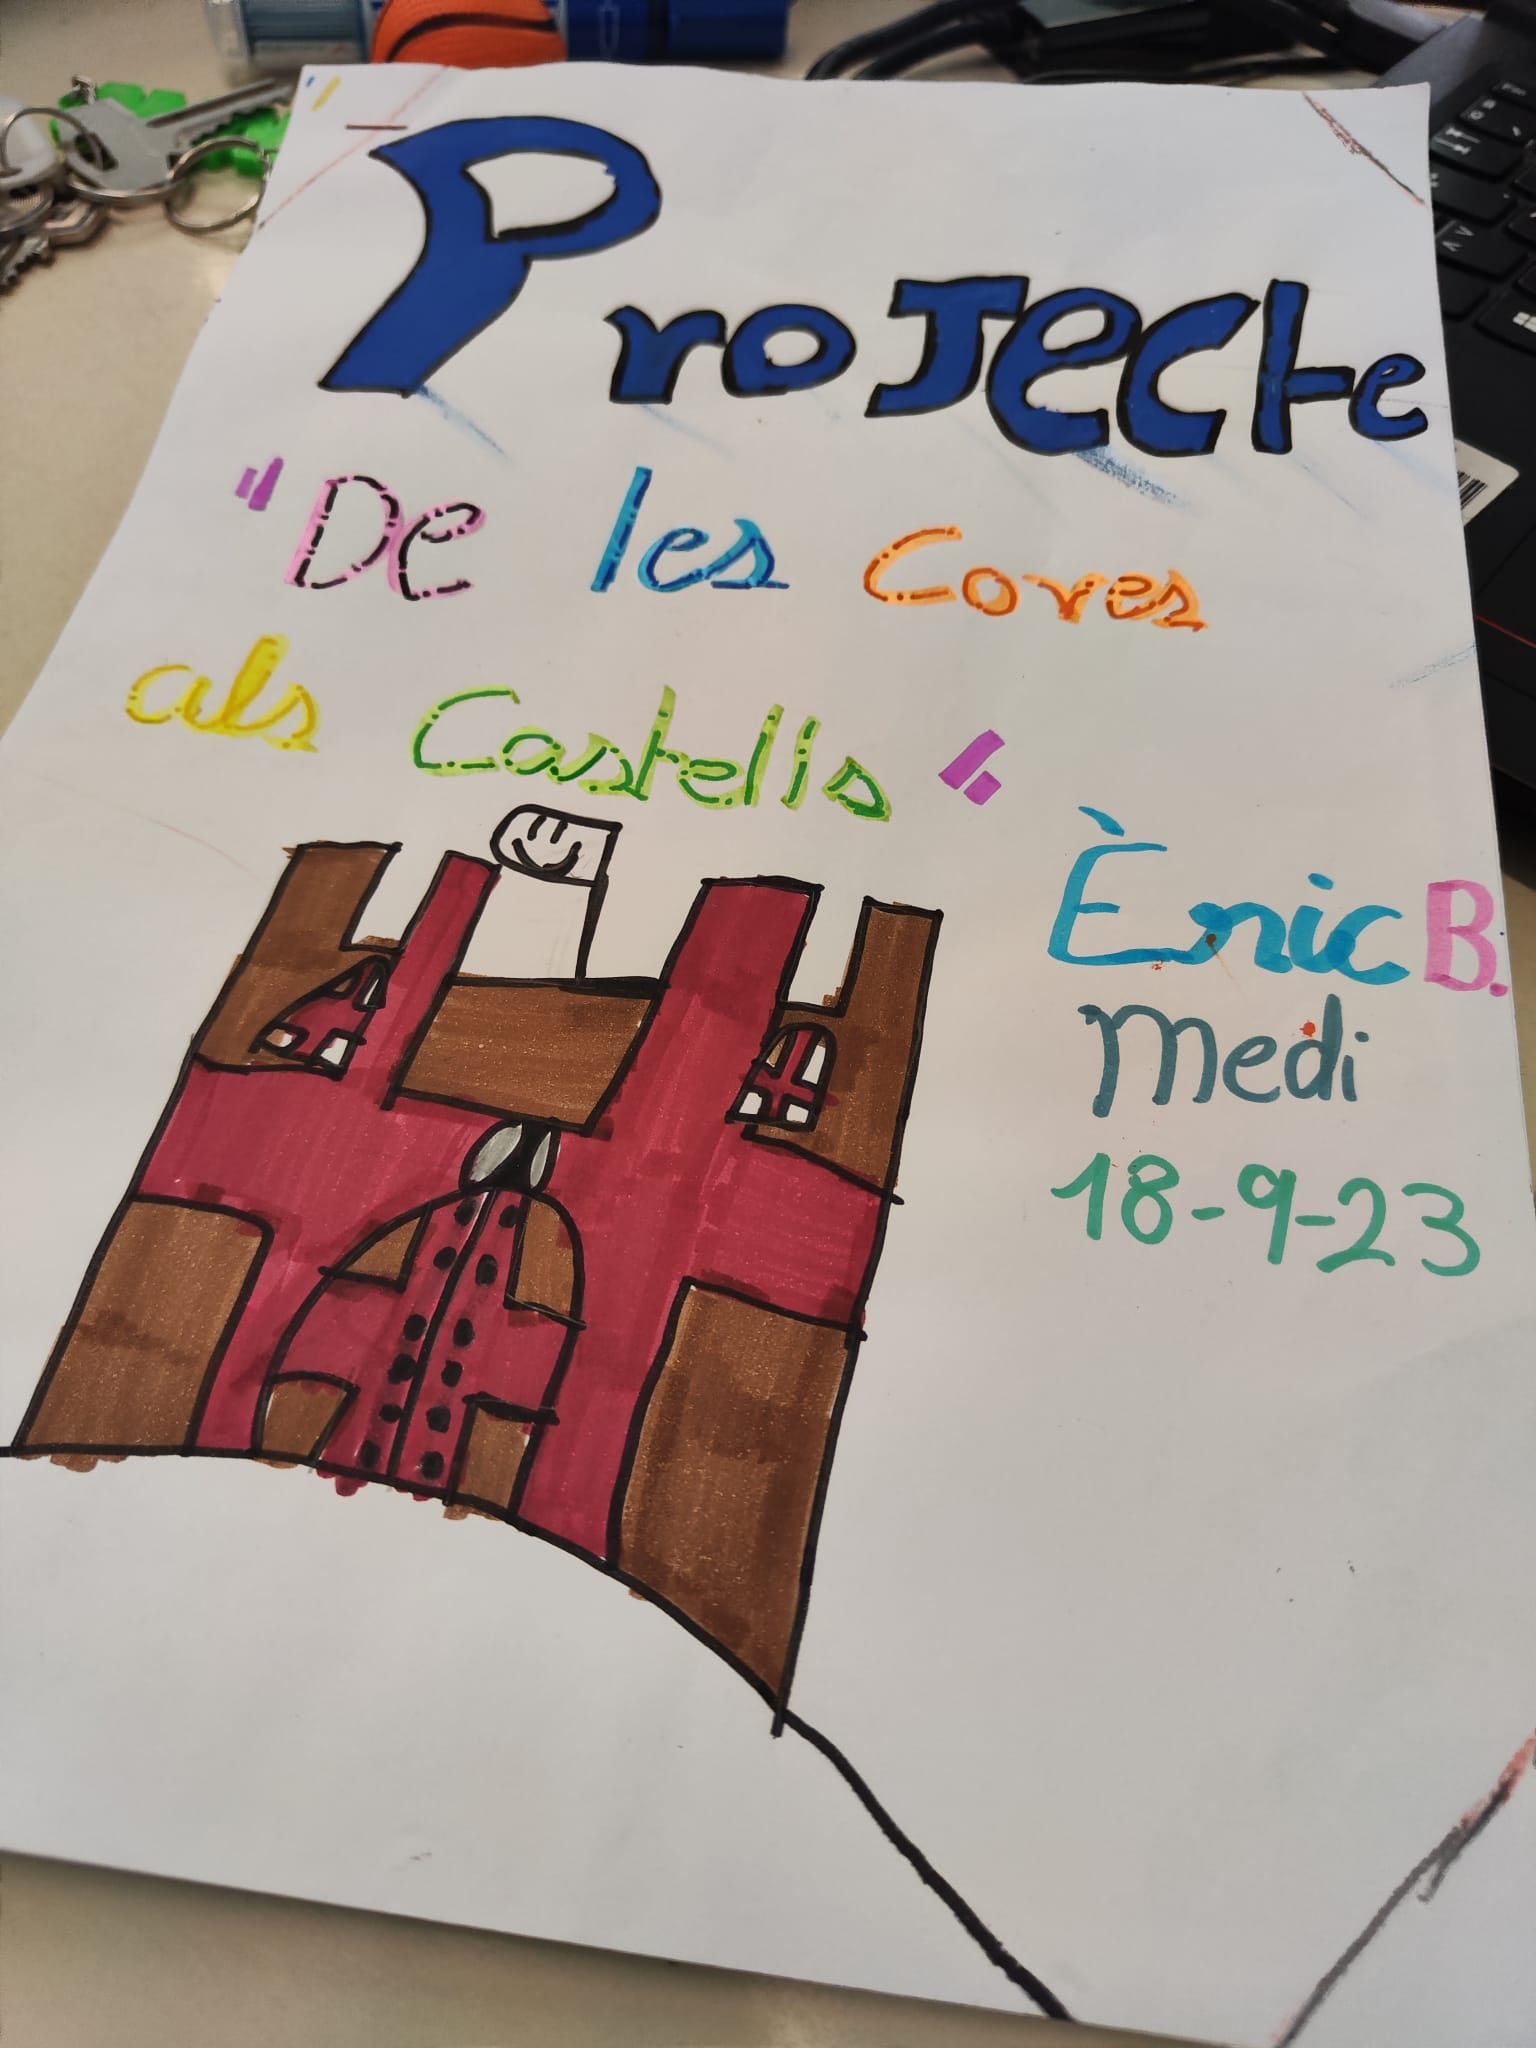 Projecte
"De les Coves
als Castells"
Ènic B.
Medi
18-9-23